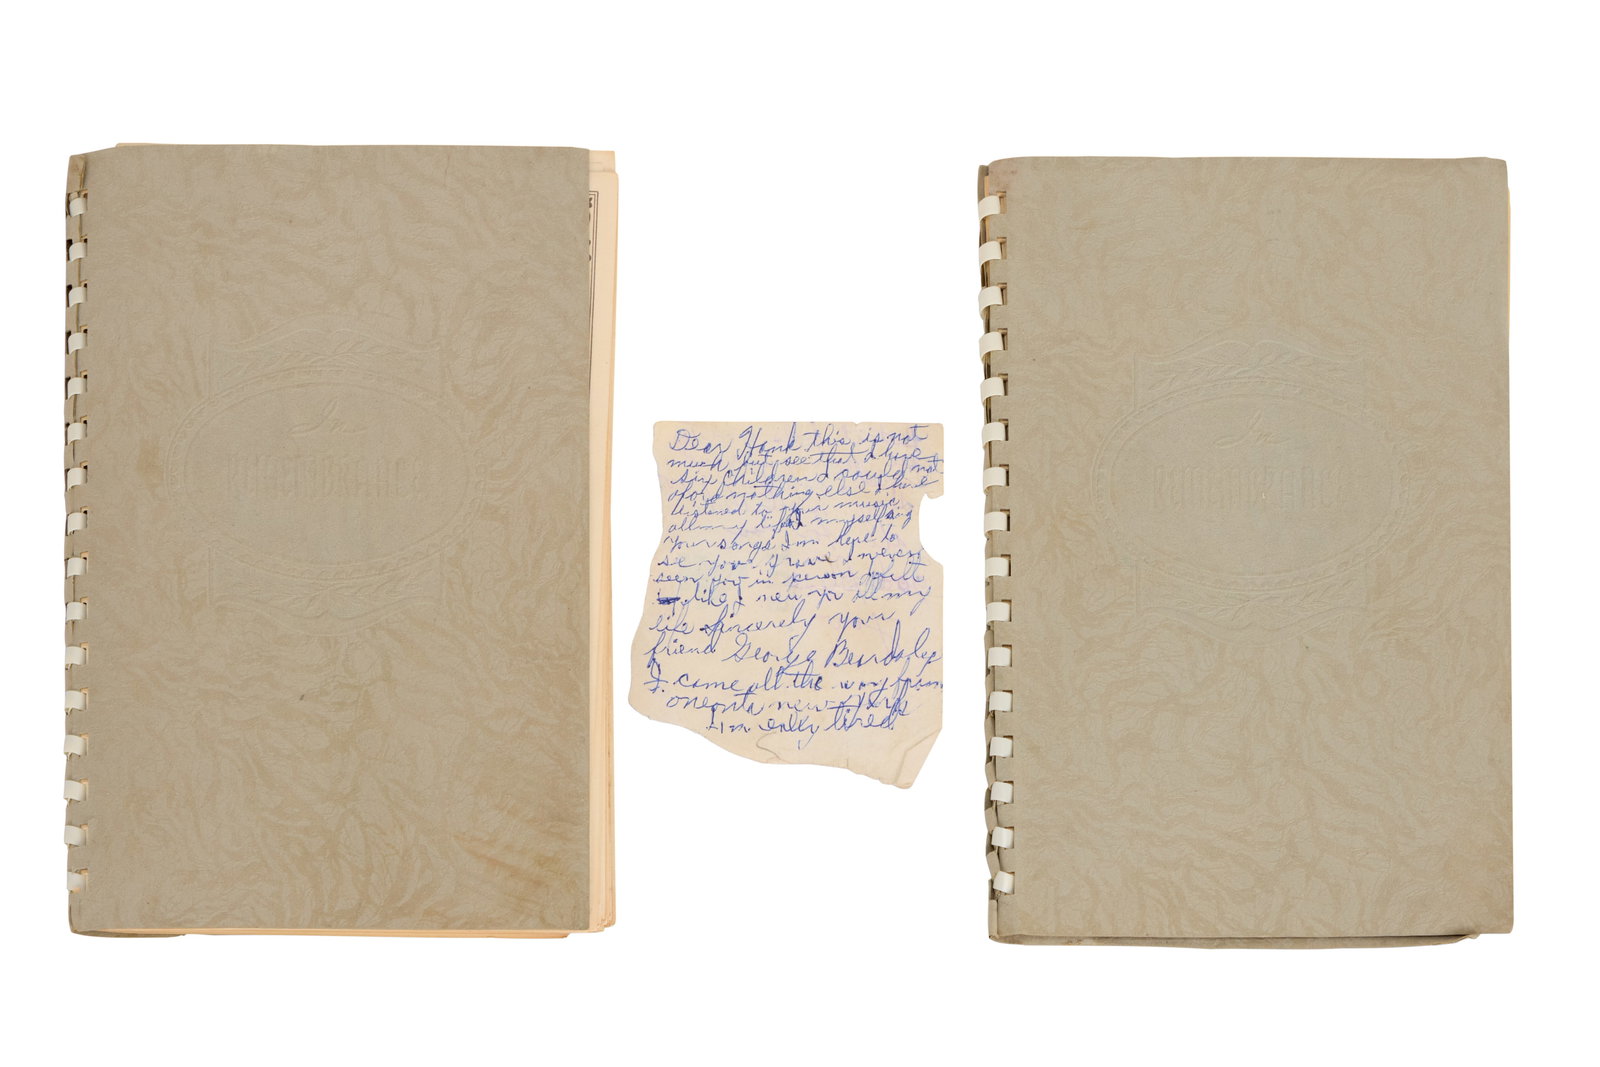 In
Dear Hank this is not
much but see that I have
six children I could not
aford nothing else I have
listened to your music
all my life I myself sing
your songs I'm here to
se your grave I never
seen you in person I felt
like I new you all my
life Sincerely your
friend George Beardslee
I come all the way from
oneonta new york
I'm really tired